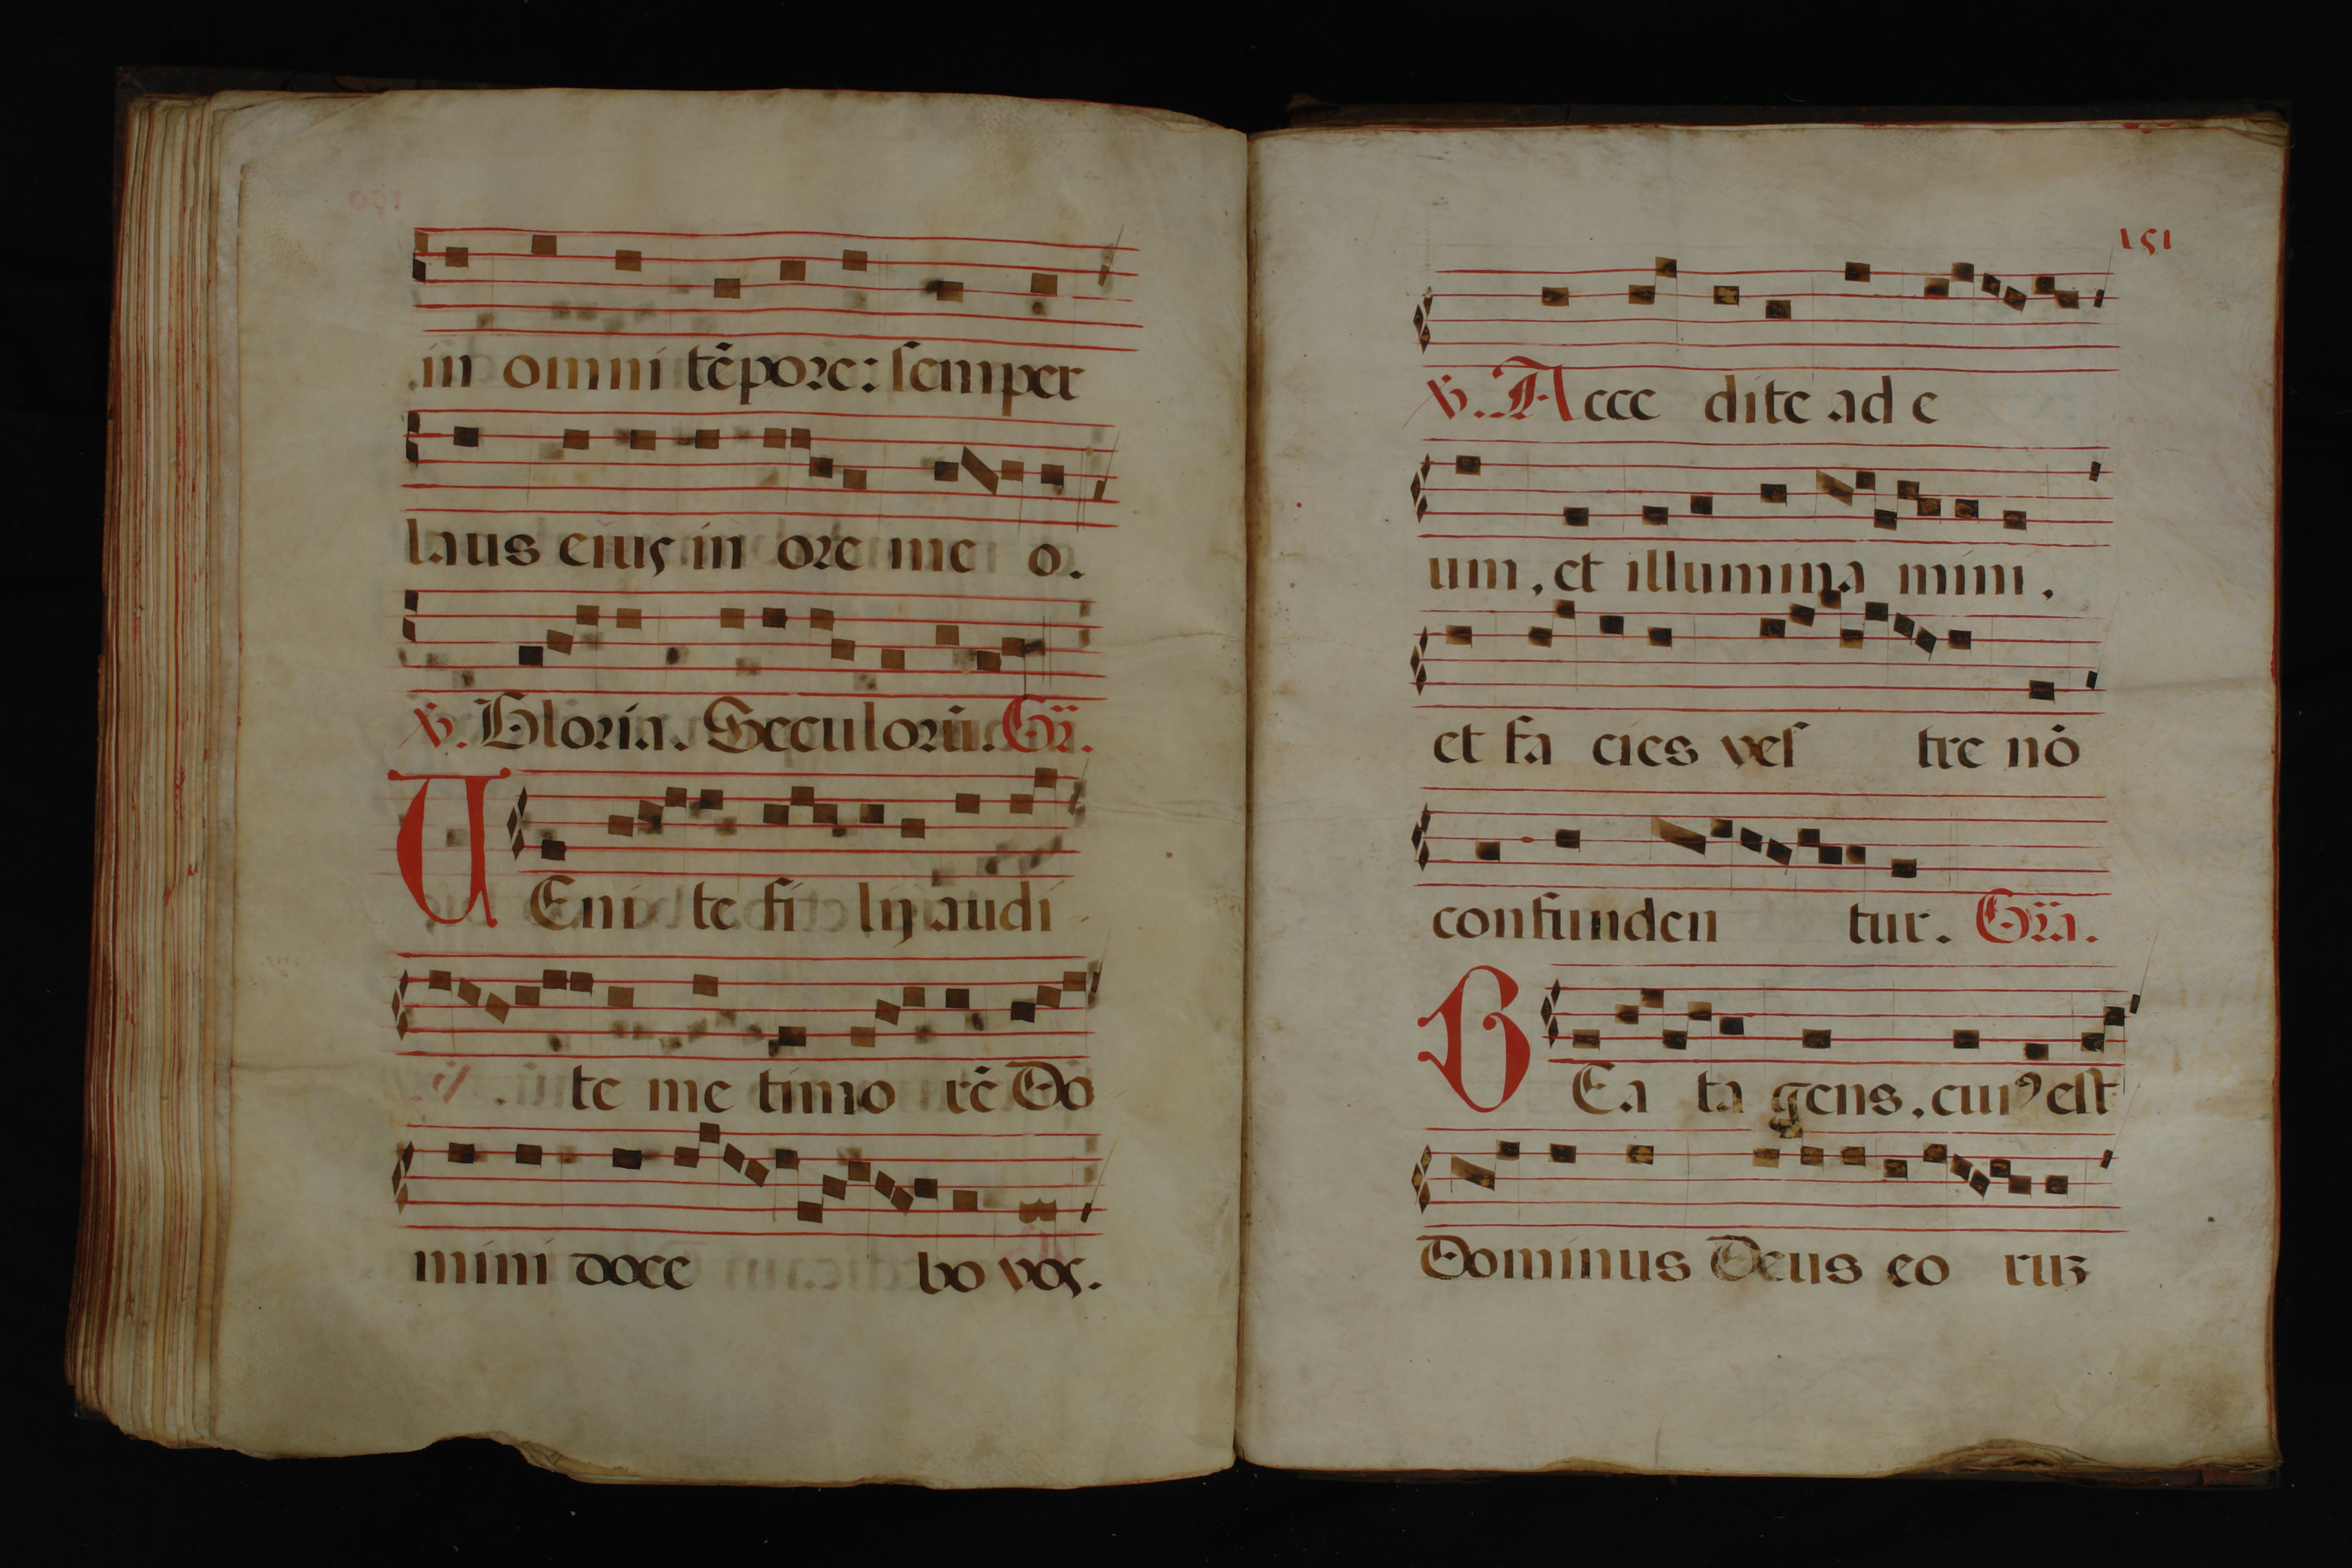 in omni tẽpore: semper
laus eius in ore me o.
℣. Gloria. Seculorũ. Gr̃.
VEni te fi lij audi
te me timo rẽ Do
mini doce bo vos.
151
℣. Acce dite ad e
um, et illumina mini.
et fa cies ves tre nõ
confunden tur. Gr̃a.
BEa ta gens, cuiꝰ est
Dominus Deus eo ruꝫ